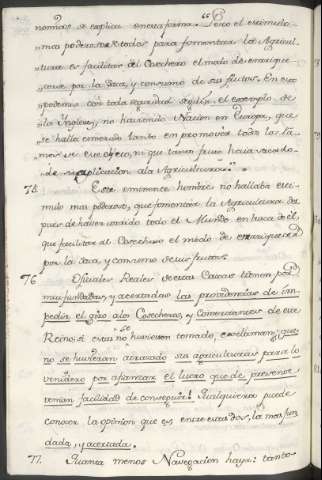 nomias se explica en esta forma. "Pero el estimulo
mas poderoso de todos para fomentar la Agricul-
tura es facilitar al Cosechero el modo de enrique-
cerse por la saca, y consumo de sus frutos. En esto
podemos con toda seguridad seguir el exemplo de
la Ynglesa, no haviendo Nacion en Europa, que
se halla esmerado tanto en promover todas las ra-
mos de este objeto, ni que tantos frutos haia sacado
de su aplicacion ala Agricultura."
75. Este eminente hombre no hallaba esti-
mulo mas poderoso, que fomentar la Agricultura des-
pues de haver corrido todo el Mundo en busca de él,
que facilitar al Cosechero el modo de enriquecerse
por la saca y consumo de sus frutos.
76. Oficiales Reales de estas Caxas tienen por
mui fundadas, y acertadas las providencias de im-
pedir el giro alos Cosecheros, y Comerciantes de este
Reino; si estas no se huviesen tomado, exclaman, que
no se huvieran atrasado sus agriculturas para lo
venidero por afianzar el lucro que de presente
tenian facilidad de conseguir. Qualquiera puede
conocer la opinion que es entre estas dos, la mas fun-
dada, y acertada.
77. Quanta menos Navegacion haya: tanto